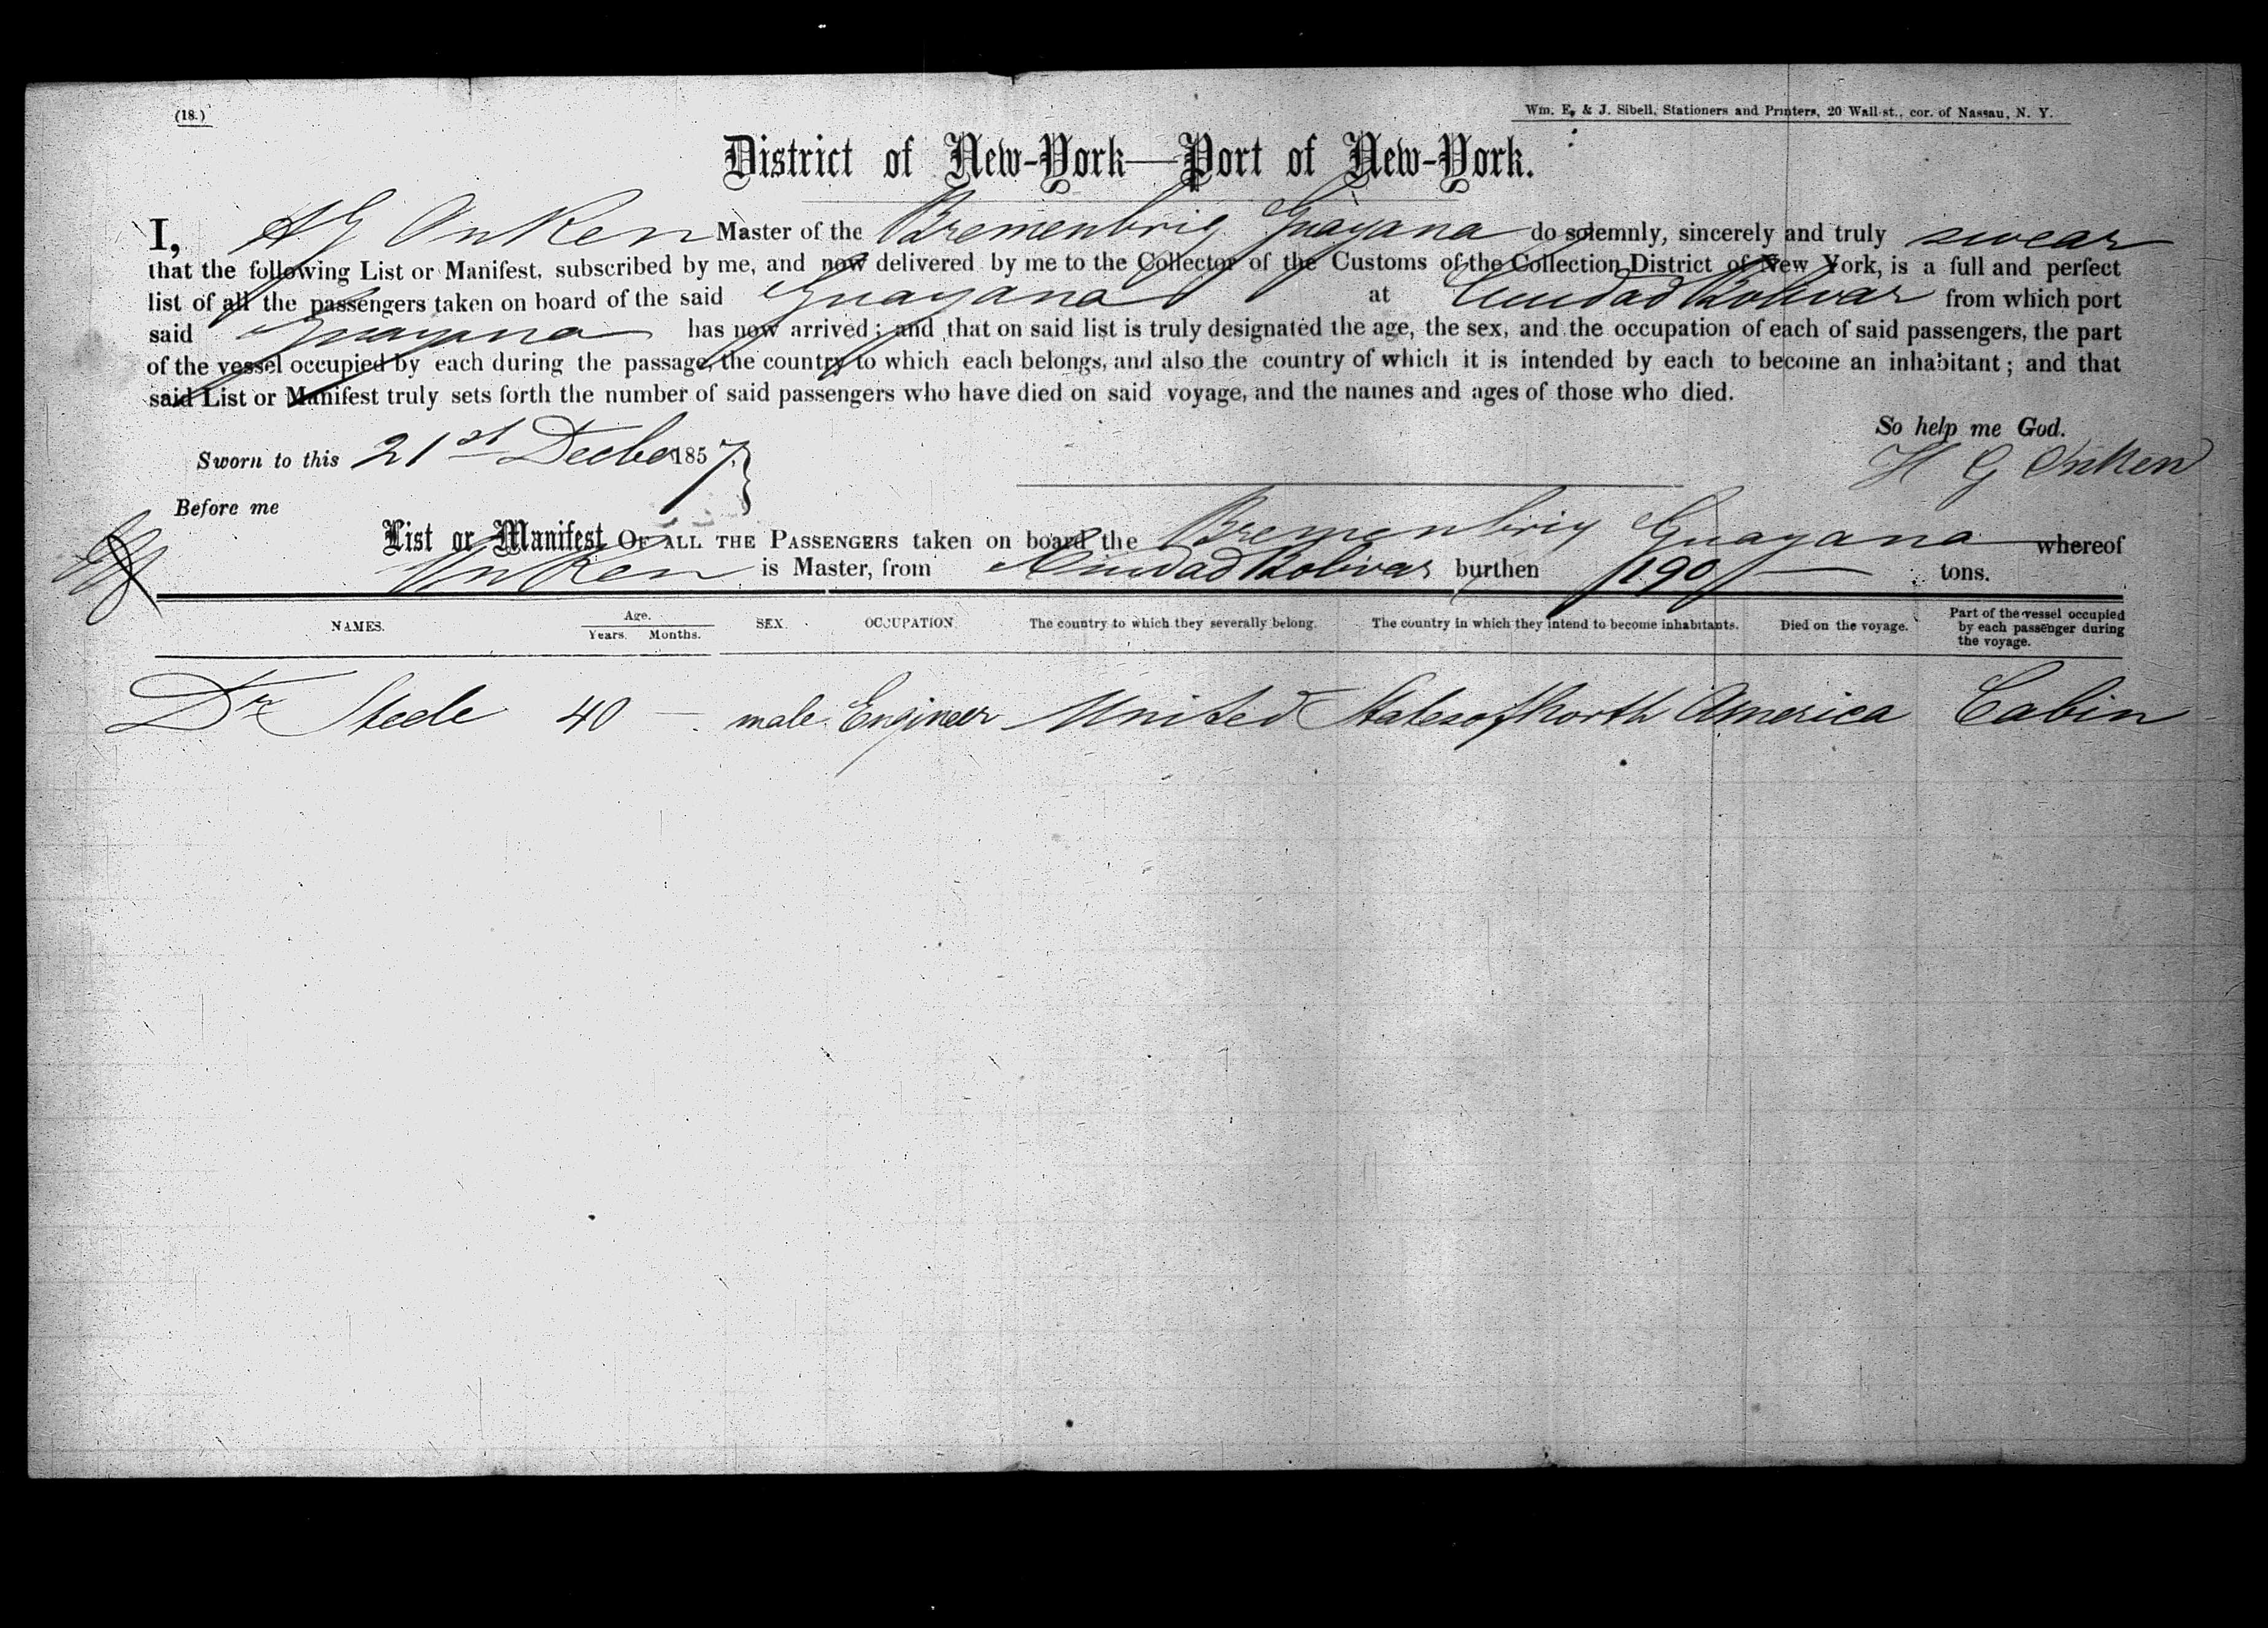 (18.)
Wm. E. & J. Sibell, Stationers and Printers, 20 Wall-st., cor. of Nassau, N. Y.
District of New-York—Port of New-York.
I, H G Onken Master of the Bremenbrig Guayana do solemnly, sincerely and truly swear
that the following List or Manifest, subscribed by me, and now delivered by me to the Collector of the Customs of the Collection District of New York, is a full and perfect
list of all the passengers taken on board of the said Guayana at Ciudad Bolivar from which port
said Guayana has now arrived; and that on said list is truly designated the age, the sex, and the occupation of each of said passengers, the part
of the vessel occupied by each during the passage, the country to which each belongs, and also the country of which it is intended by each to become an inhabitant; and that
said List or Manifest truly sets forth the number of said passengers who have died on said voyage, and the names and ages of those who died.
So help me God.
Sworn to this 21st Decber 1857. H G Onken
Before me
List or Manifest OF ALL THE PASSENGERS taken on board the Bremenbrig Guayana whereof
Onken is Master, from Ciudad Bolivar burthen 190 tons.
NAMES. Age. Years. Months. SEX. OCCUPATION. The country to which they severally belong. The country in which they intend to become inhabitants. Died on the voyage. Part of the vessel occupied by each passenger during the voyage.
Dr Steele 40 — male Engineer United States of North America Cabin